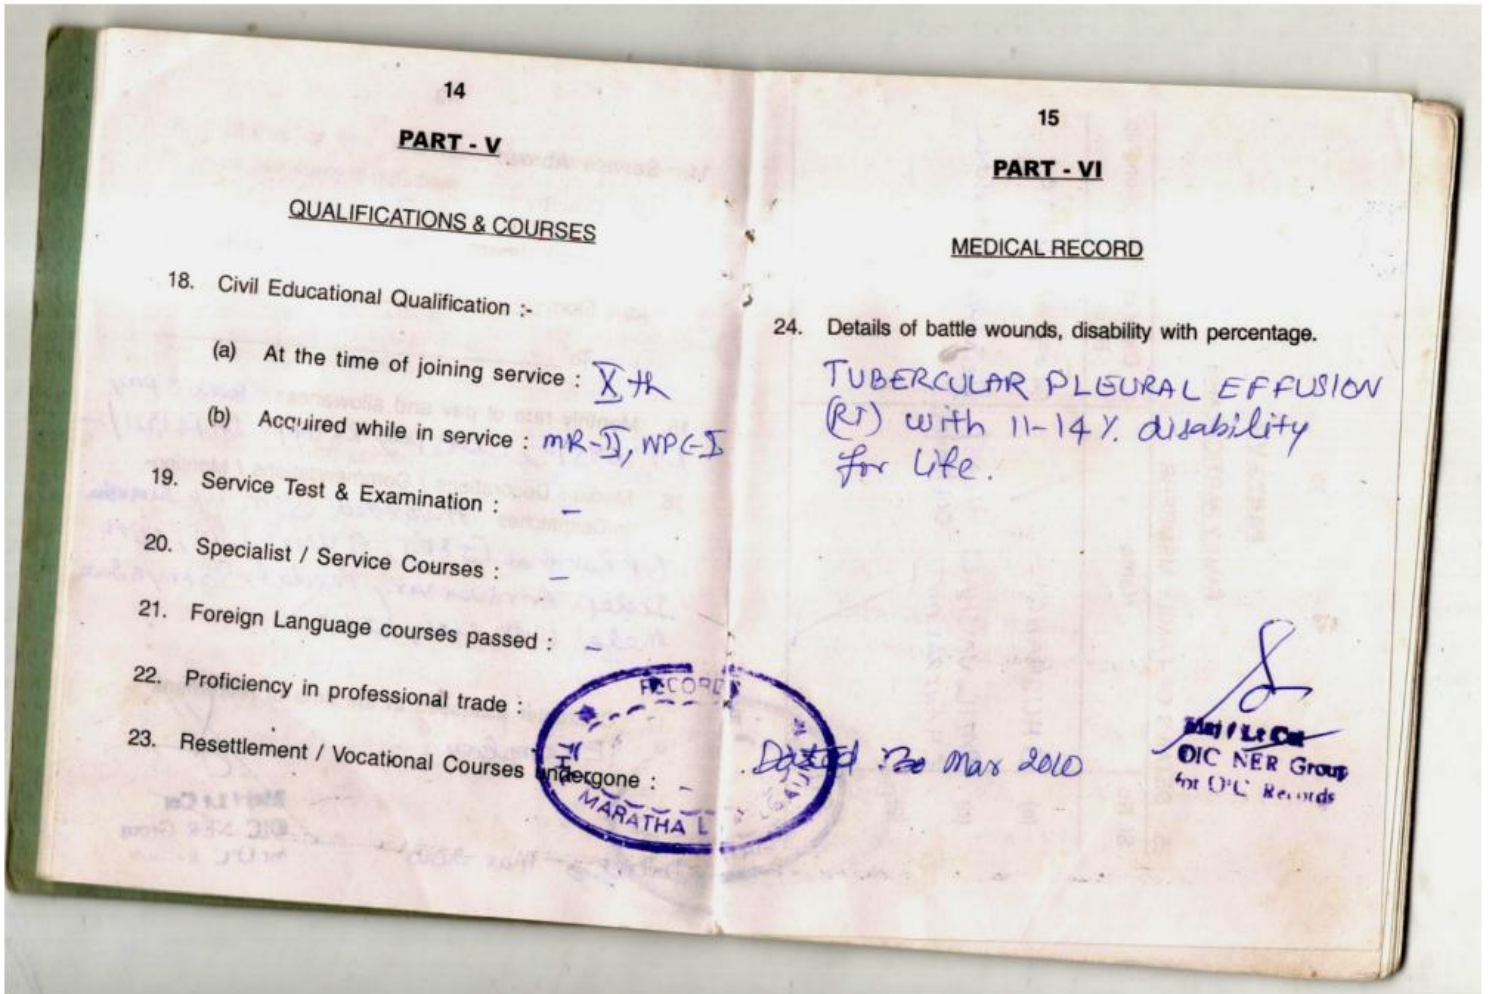 14
PART - V
QUALIFICATIONS & COURSES
18. Civil Educational Qualification :-
(a) At the time of joining service : Xth
(b) Acquired while in service : MR-II, NPC-I
19. Service Test & Examination : –
20. Specialist / Service Courses : –
21. Foreign Language courses passed : –
22. Proficiency in professional trade :
23. Resettlement / Vocational Courses undergone : –
RECORDS
THE MARATHA L
15
PART - VI
MEDICAL RECORD
24. Details of battle wounds, disability with percentage.
TUBERCULAR PLEURAL EFFUSION
(RT) with 11-14%. disability
for life.
Dated : Mar 2010
Maj / Lt Col
OIC NER Group
for OIC Records